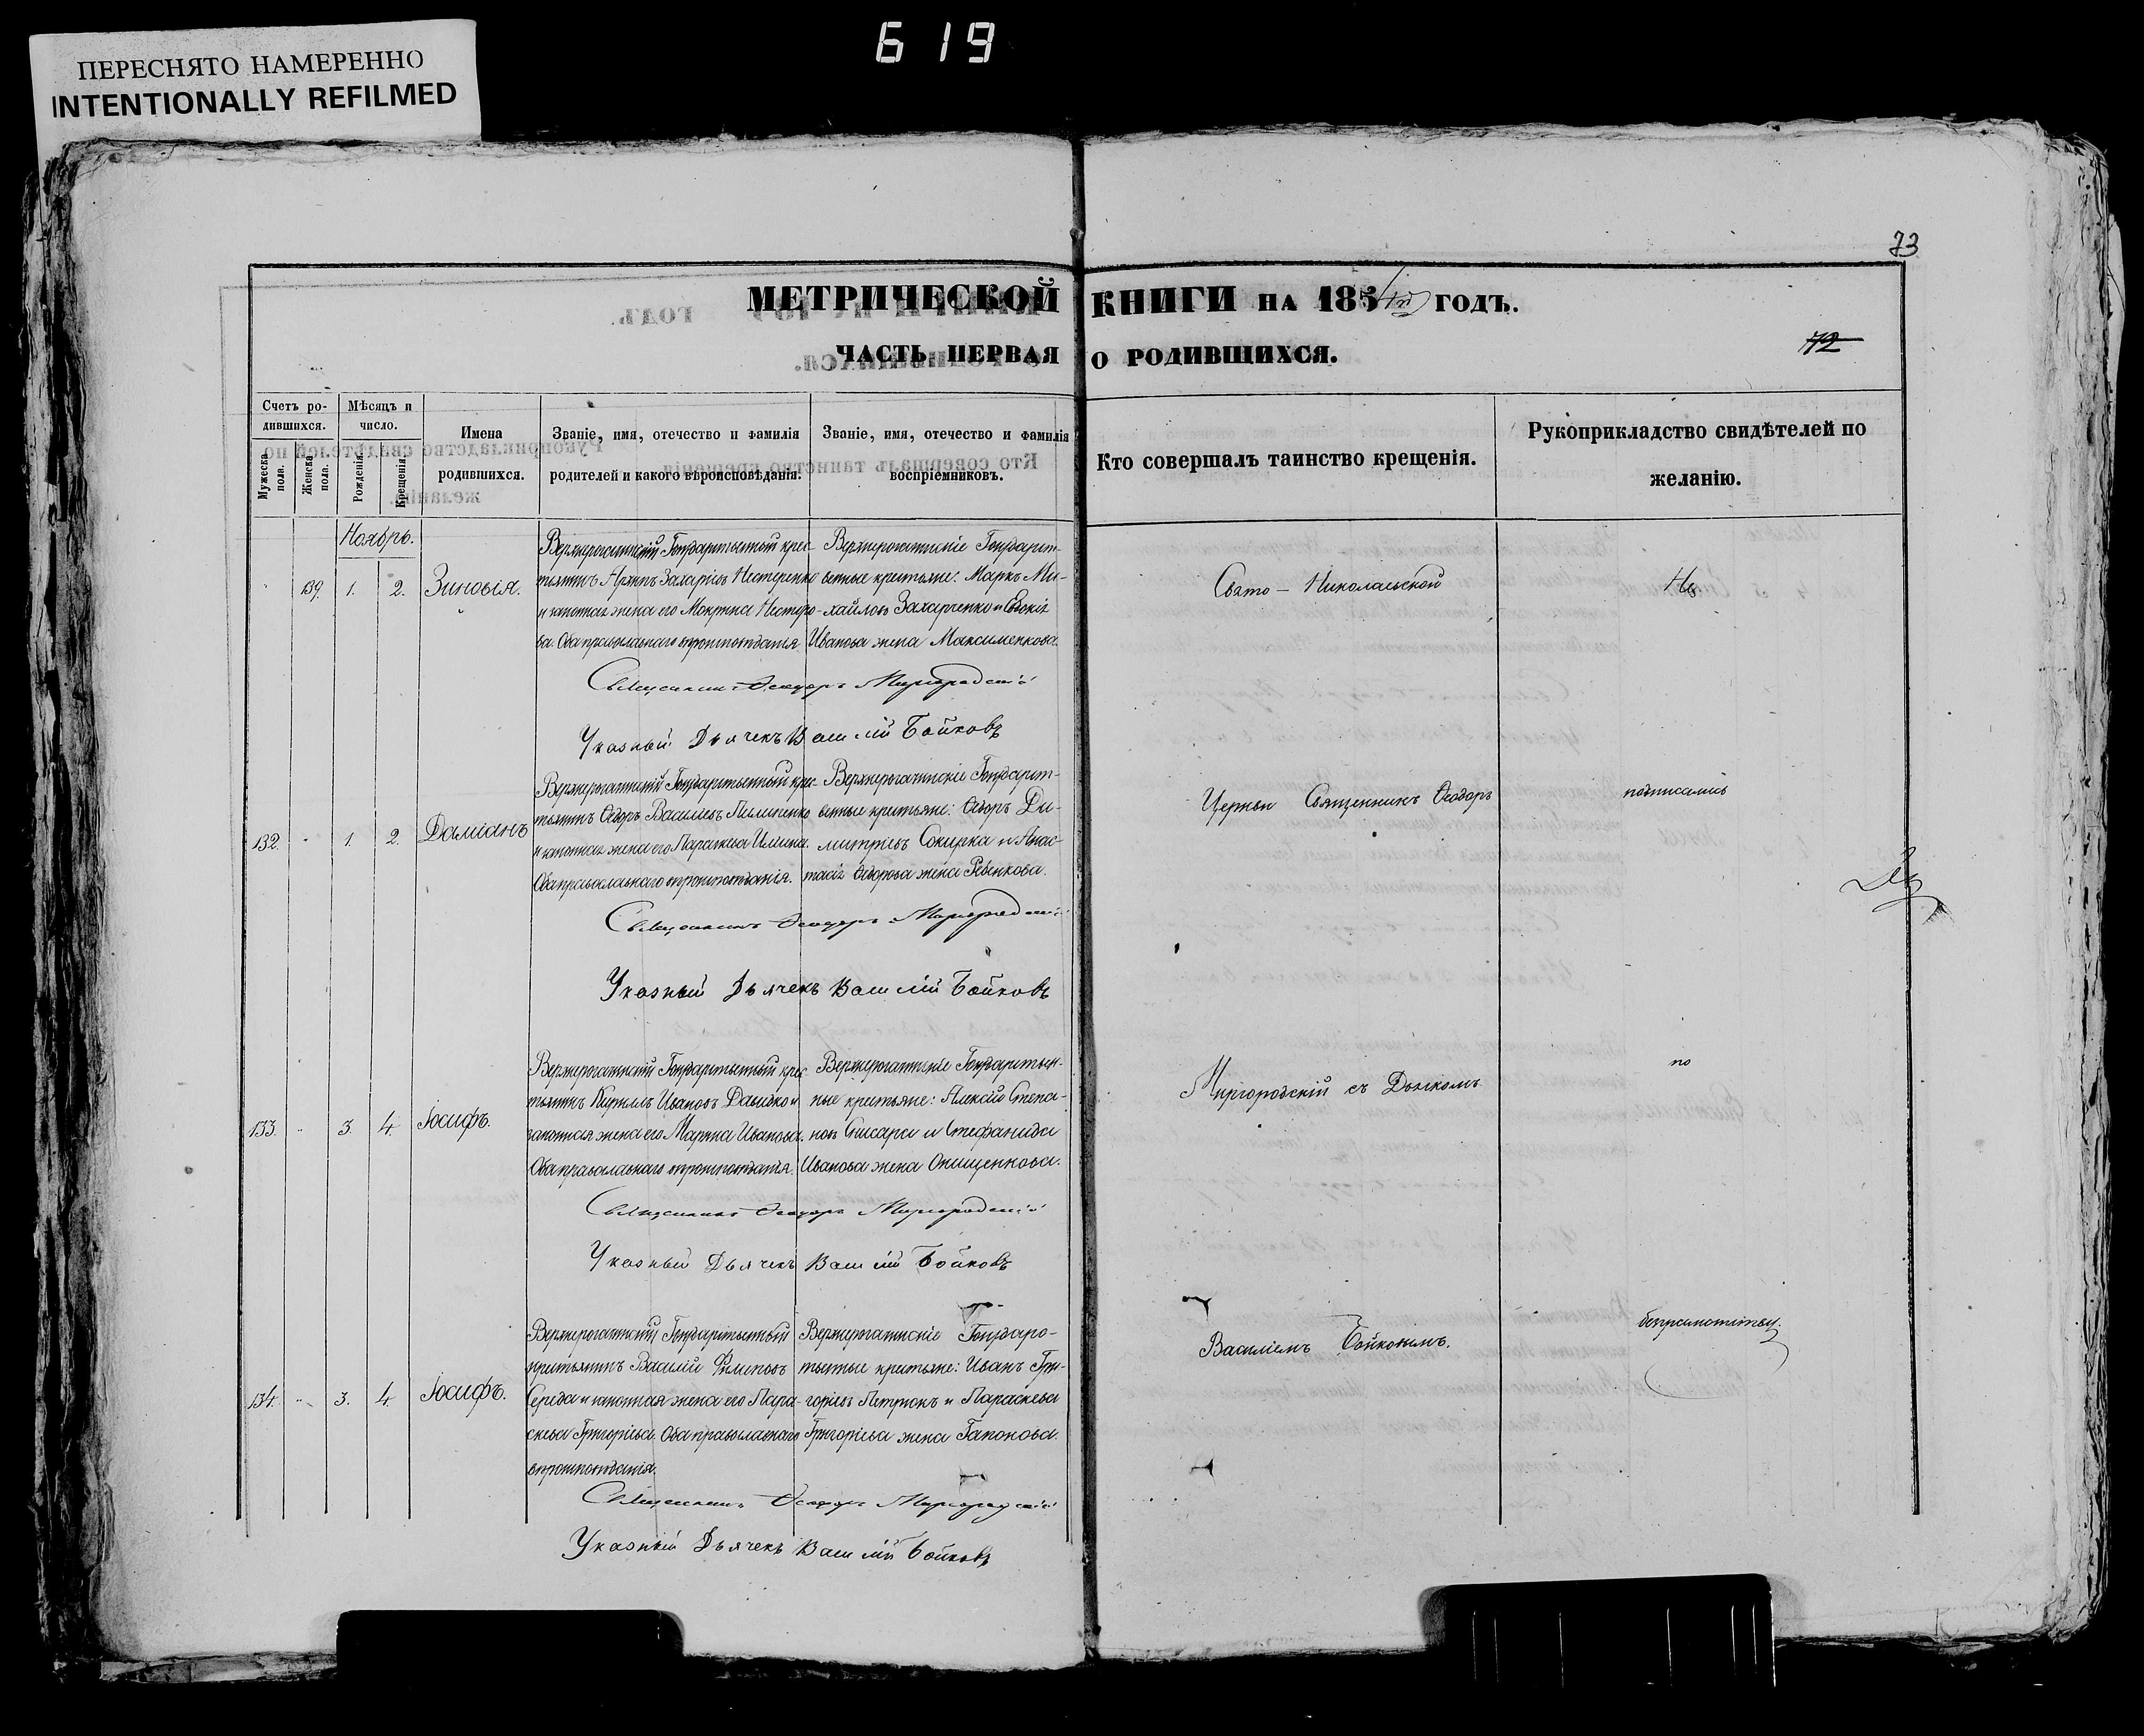 619
ПЕРЕСНЯТО НАМЕРЕННО
INTENTIONALLY REFILMED
73
МЕТРИЧЕСКОЙ КНИГИ НА 185 ГОДЪ.
ЧАСТЬ ПЕРВАЯ О РОДИВШИХСЯ.
72
Счетъ ро-
дившихся.
Мужеска пола.
Женска пола.
Мѣсяцъ и
число.
Рожденія.
Крещенія.
Имена
родившихся.
Званіе, имя, отечество и фамилія
родителей и какого вѣроисповѣданія.
Званіе, имя, отечество и фамилія
воспріемниковъ.
Кто совершалъ таинство крещенія.
Рукоприкладство свидѣтелей по
желанію.
Ноябрь.
139. 1. 2. Зиновія.
Верхнерогачинскій Государственный крес-
тьянинъ Архипъ Захаріевъ Нестеренко
и законная жена его Мокрина Нестеро-
ва. Оба православнаго вѣроисповѣданія
Верхнерогачинскіе Государст-
венные крестьяне: Маркъ Ми-
хайловъ Захарченко и Евдокія
Иванова жена Максименкова.
Священникъ Ѳеодоръ Миргородскій
Указный Дьячекъ Василій Бойковъ
132. 1. 2. Даміанъ
Верхнерогачинскій Государственный крес-
тьянинъ Ѳедоръ Василіевъ Пилипенко
и законная жена его Параскева Ильина.
Оба православнаго вѣроисповѣданія.
Верхнерогачинскіе Государст-
венные крестьяне: Ѳедоръ Ди-
митріевъ Сокирка и Анас-
тасія Ѳедорова жена Ревенкова.
Священникъ Ѳеодоръ Миргородскій
Указный Дьячекъ Василій Бойковъ
133. 3. 4. Іосифъ.
Верхнерогачинскій Государственный крес-
тьянинъ Кириллъ Ивановъ Давидко и
законная жена его Марѳа Иванова.
Оба православнаго вѣроисповѣданія.
Верхнерогачинскіе Государствен-
ные крестьяне: Алексій Степа-
новъ Снисара и Стефанида
Иванова жена Онищенкова.
Священникъ Ѳеодоръ Миргородскій
Указный Дьячекъ Василій Бойковъ
134. 3. 4. Іосифъ.
Верхнерогачинскій Государственный
крестьянинъ Василій Филиповъ
Середа и законная жена его Пара-
скева Григоріева. Оба православнаго
вѣроисповѣданія.
Верхнерогачинскіе Государс-
твенные крестьяне: Иванъ Гри-
горіевъ Петрюкъ и Параскева
Григоріева жена Гапонова.
Священникъ Ѳеодоръ Миргородскій
Указный Дьячекъ Василій Бойковъ
Свято-Николаевской
Церкви Священникъ Ѳеодоръ
Миргородскій съ Дьячкомъ
Василіемъ Бойковымъ.
Не
подписались
по
безграмотству.